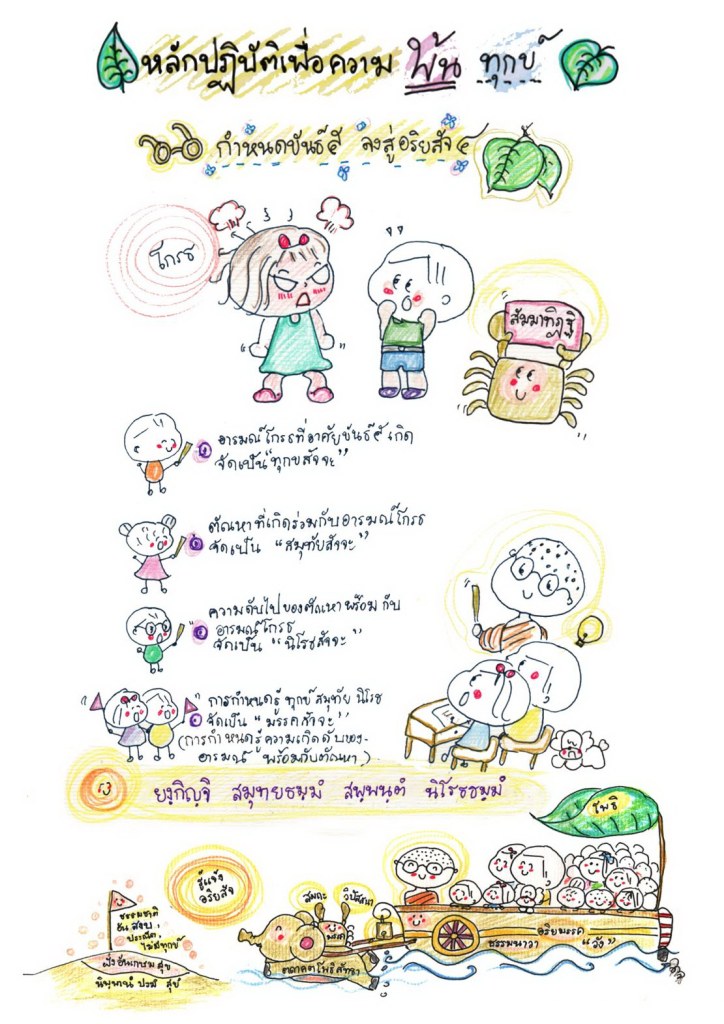 หลักปฏิบัติเพื่อความ พ้น ทุกข์
กำหนดขันธ์๕ ลงสู่อริยสัจ ๔
โกรธ
สัมมาทิฏฐิ
๑ อารมณ์โกรธที่อาศัยขันธ์๕ เกิด
จัดเป็น "ทุกขสัจจะ"
๒ ตัณหาที่เกิดร่วมกับอารมณ์โกรธ
จัดเป็น "สมุทัยสัจจะ"
ความดับไปของตัณหาพร้อมกับ
อารมณ์โกรธ
จัดเป็น "นิโรธสัจจะ"
การกำหนดรู้ ทุกข์ สมุทัย นิโรธ
จัดเป็น "มรรคสัจจะ"
(การกำหนดรู้ความเกิดดับของ-
อารมณ์ พร้อมกับตัณหา)
ยงฺกิญฺจิ สมุทยธมฺมํ สพฺพนฺตํ นิโรธธมฺมํ
โพธิ
รู้แจ้ง
อริยสัจ
สมถะ
วิปัสสนา
มรรค
ธรรมชาติ
อัน สงบ,
ประณีต,
ไม่มีทุกข์
ฝั่งอันเกษม สุข
นิพฺพานํ ปรมํ สุขํ
ตถาคตโพธิสัทธา
อริยมรรค
ธรรมนาวา "วัง"